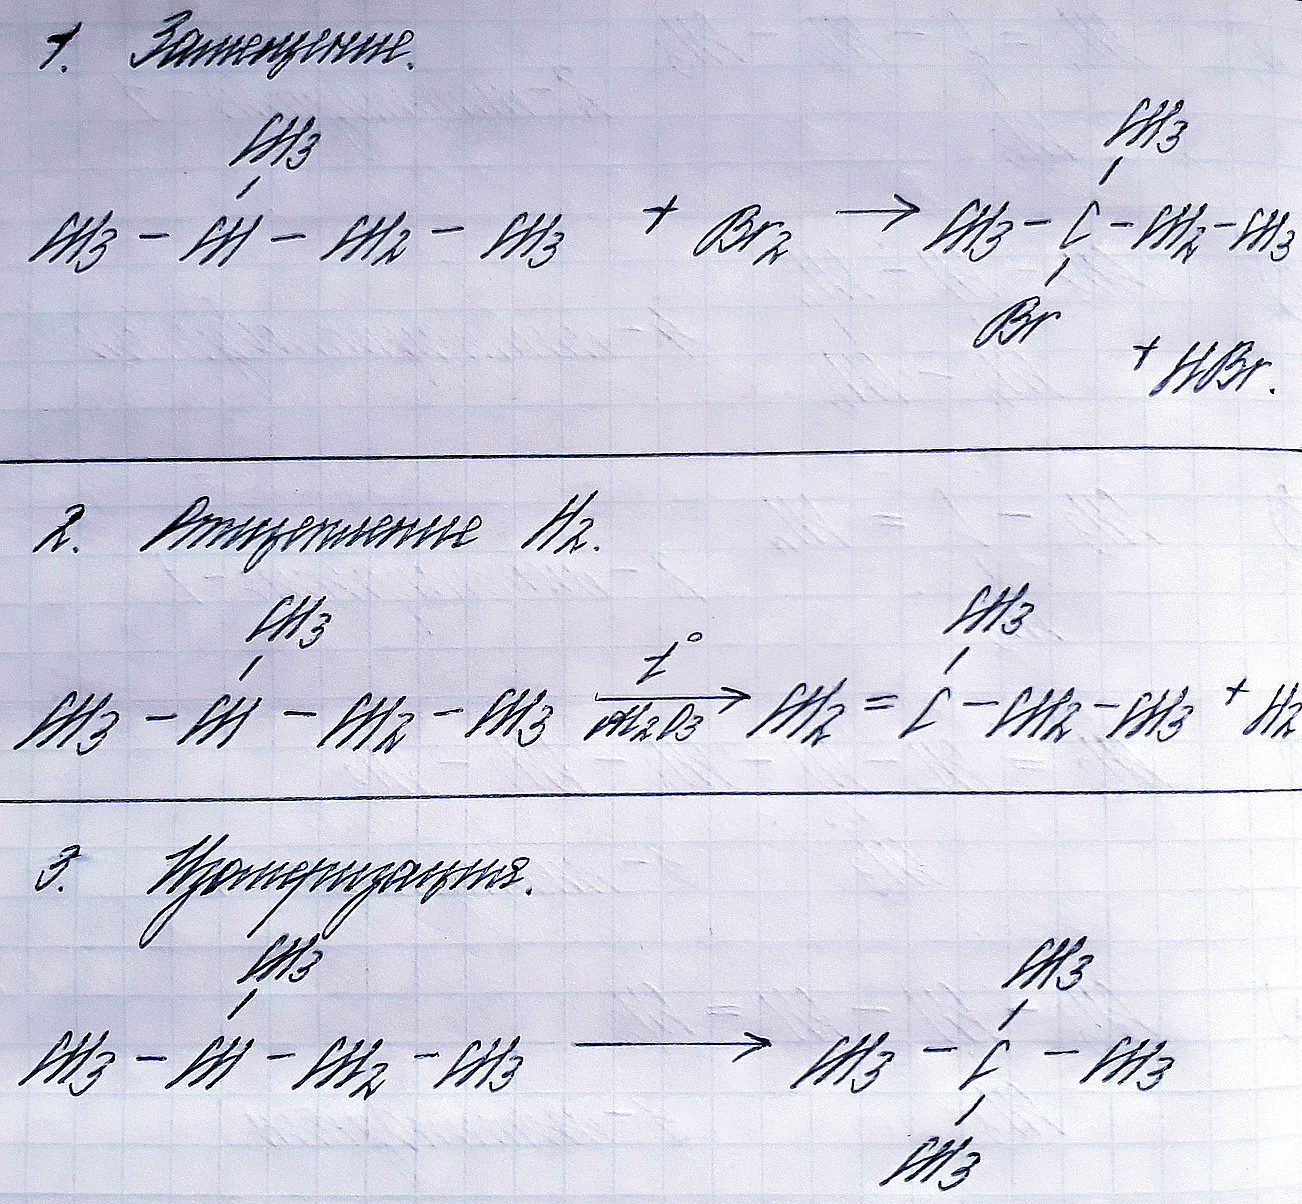 1. Замещение.
CH3
CH3 – CH – CH2 – CH3 + Br2 → CH3 – C – CH2 – CH3
CH3
Br
+ HBr.
2. Отщепление H2.
CH3
CH3 – CH – CH2 – CH3 t° Al2O3 → CH2 = C – CH2 – CH3 + H2
CH3
3. Изомеризация.
CH3
CH3 – CH – CH2 – CH3 → CH3 – C – CH3
CH3
CH3